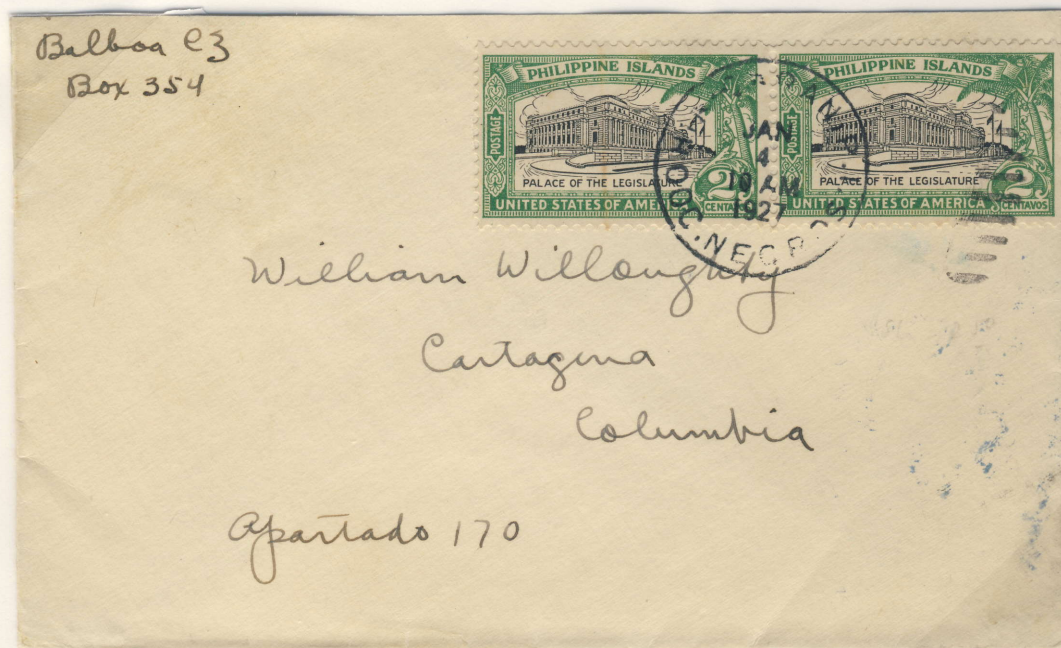 Balboa CZ
Box 354
PHILIPPINE ISLANDS
POSTAGE
PALACE OF THE LEGISLATURE
2
CENTAVOS
UNITED STATES OF AMERICA
PHILIPPINE ISLANDS
POSTAGE
PALACE OF THE LEGISLATURE
2
CENTAVOS
UNITED STATES OF AMERICA
JAN
4
10 AM
1927
OCC. NEGR
William Willoughby
Cartagena
Columbia
Apartado 170